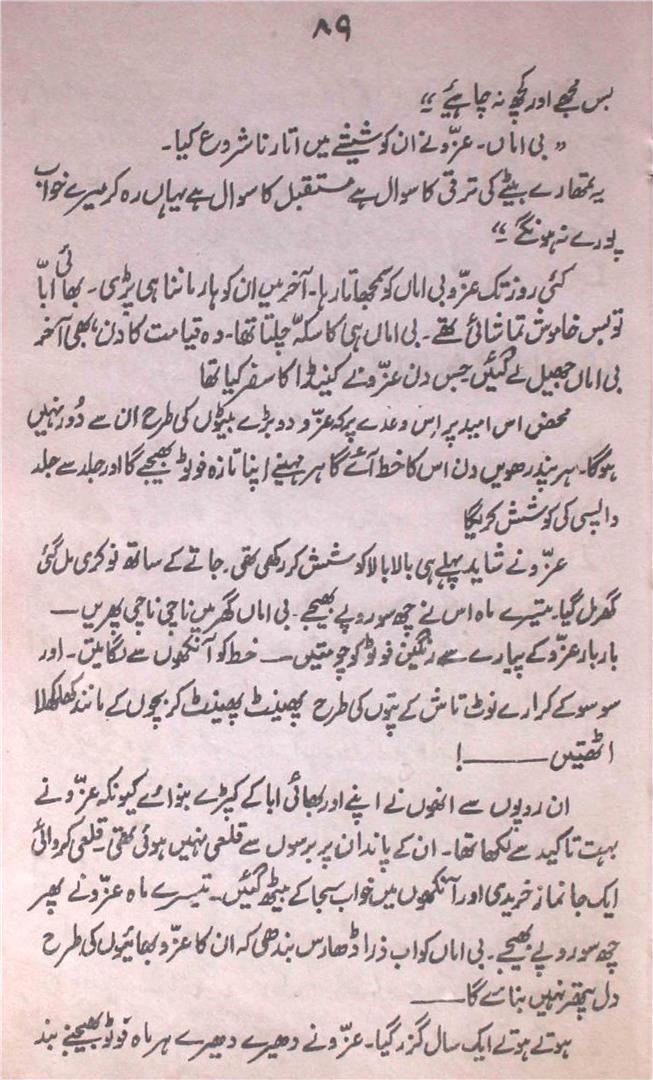 ۸۹
بس مجھے اور کچھ نہ چاہئیے ‘‘
’’ بی اماں۔ عزّو نے ان کو شیشے میں اتارنا شروع کیا۔
یہ تمھارے بیٹے کی ترقی کا سوال ہے مستقبل کا سوال ہے یہاں رہ کر میرے خواب
پورے نہ ہونگے ‘‘
کئی روز تک عزّو بی اماں کو سمجھاتا رہا۔ آخر میں ان کو ہار ماننا ہی پڑی۔ بھائی ابّا
تو بس خاموش تماشائی تھے۔ بی اماں ہی کا سکّہ چلتا تھا۔ وہ قیامت کا دن، بھی آخر
بی اماں جھیل لے گئیں جس دن عزّو نے کینڈا کا سفر کیا تھا
محض اس امید پر اِس وعدے پر کہ عزّو دو بڑے بیٹوں کی طرح ان سے دُور نہیں
ہوگا۔ ہر پندرھویں دن اس کا خط آئے گا ہر مہینے اپنا تازہ فوٹو بھیجے گا اور جلد سے جلد
واپسی کی کوشش کریگا
عزّو نے شاید پہلے ہی بالا بالا کوشش کر رکھی تھی۔ جاتے کے ساتھ نوکری مل گئی
گھر مل گیا۔ تیسرے ماہ اس نے چھ سو روپے بھیجے۔ بی اماں گھر میں ناچی ناچی پھریں —
بار بار عزّو کے پیارے سے رنگین فوٹو کو چومتیں — خط کو آنکھوں سے لگاتیں۔ اور
سو سو کے کرارے نوٹ تاش کے پتوں کی طرح پھینٹ پھینٹ کر بچوں کے مانند کھلکھلا
اٹھتیں ——— !
ان روپوں سے انھوں نے اپنے اور بھائی ابا کے کپڑے بنوائے کیونکہ عزّو نے
بہت تاکید سے لکھا تھا۔ ان کے پاندان پر برسوں سے قلعی نہیں ہوئی تھی قلعی کروائی
ایک جا نماز خریدی اور آنکھوں میں خواب سجا کے بیٹھ گئیں۔ تیسرے ماہ عزّو نے پھر
چھ سو روپے بھیجے۔ بی اماں کو اب ذرا ڈھارس بندھی کہ ان کا عزّو بھائیوں کی طرح
دل پتھر نہیں بنائے گا ——
ہوتے ہوتے ایک سال گزر گیا۔ عزّو نے دھیرے دھیرے ہر ماہ فوٹو بھیجنے بند